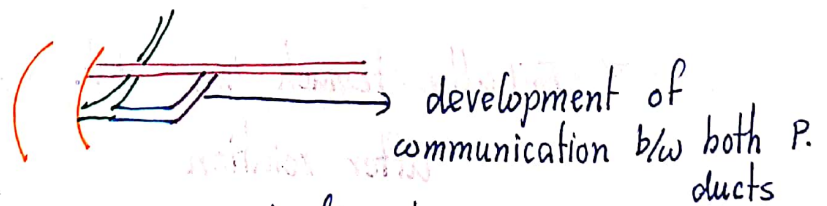 development of
communication b/w both P.
ducts